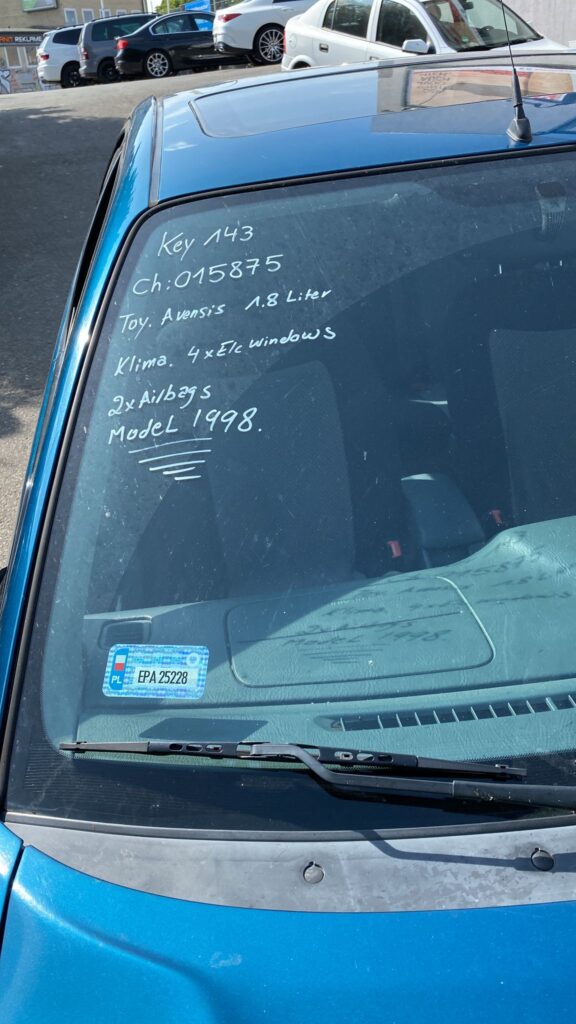 REKLAME
Key 143
Ch:015875
Toy. Avensis 1.8 Liter
Klima. 4xElc windows
2xAirbags
Model 1998.
PL EPA 25228
Model 1998.